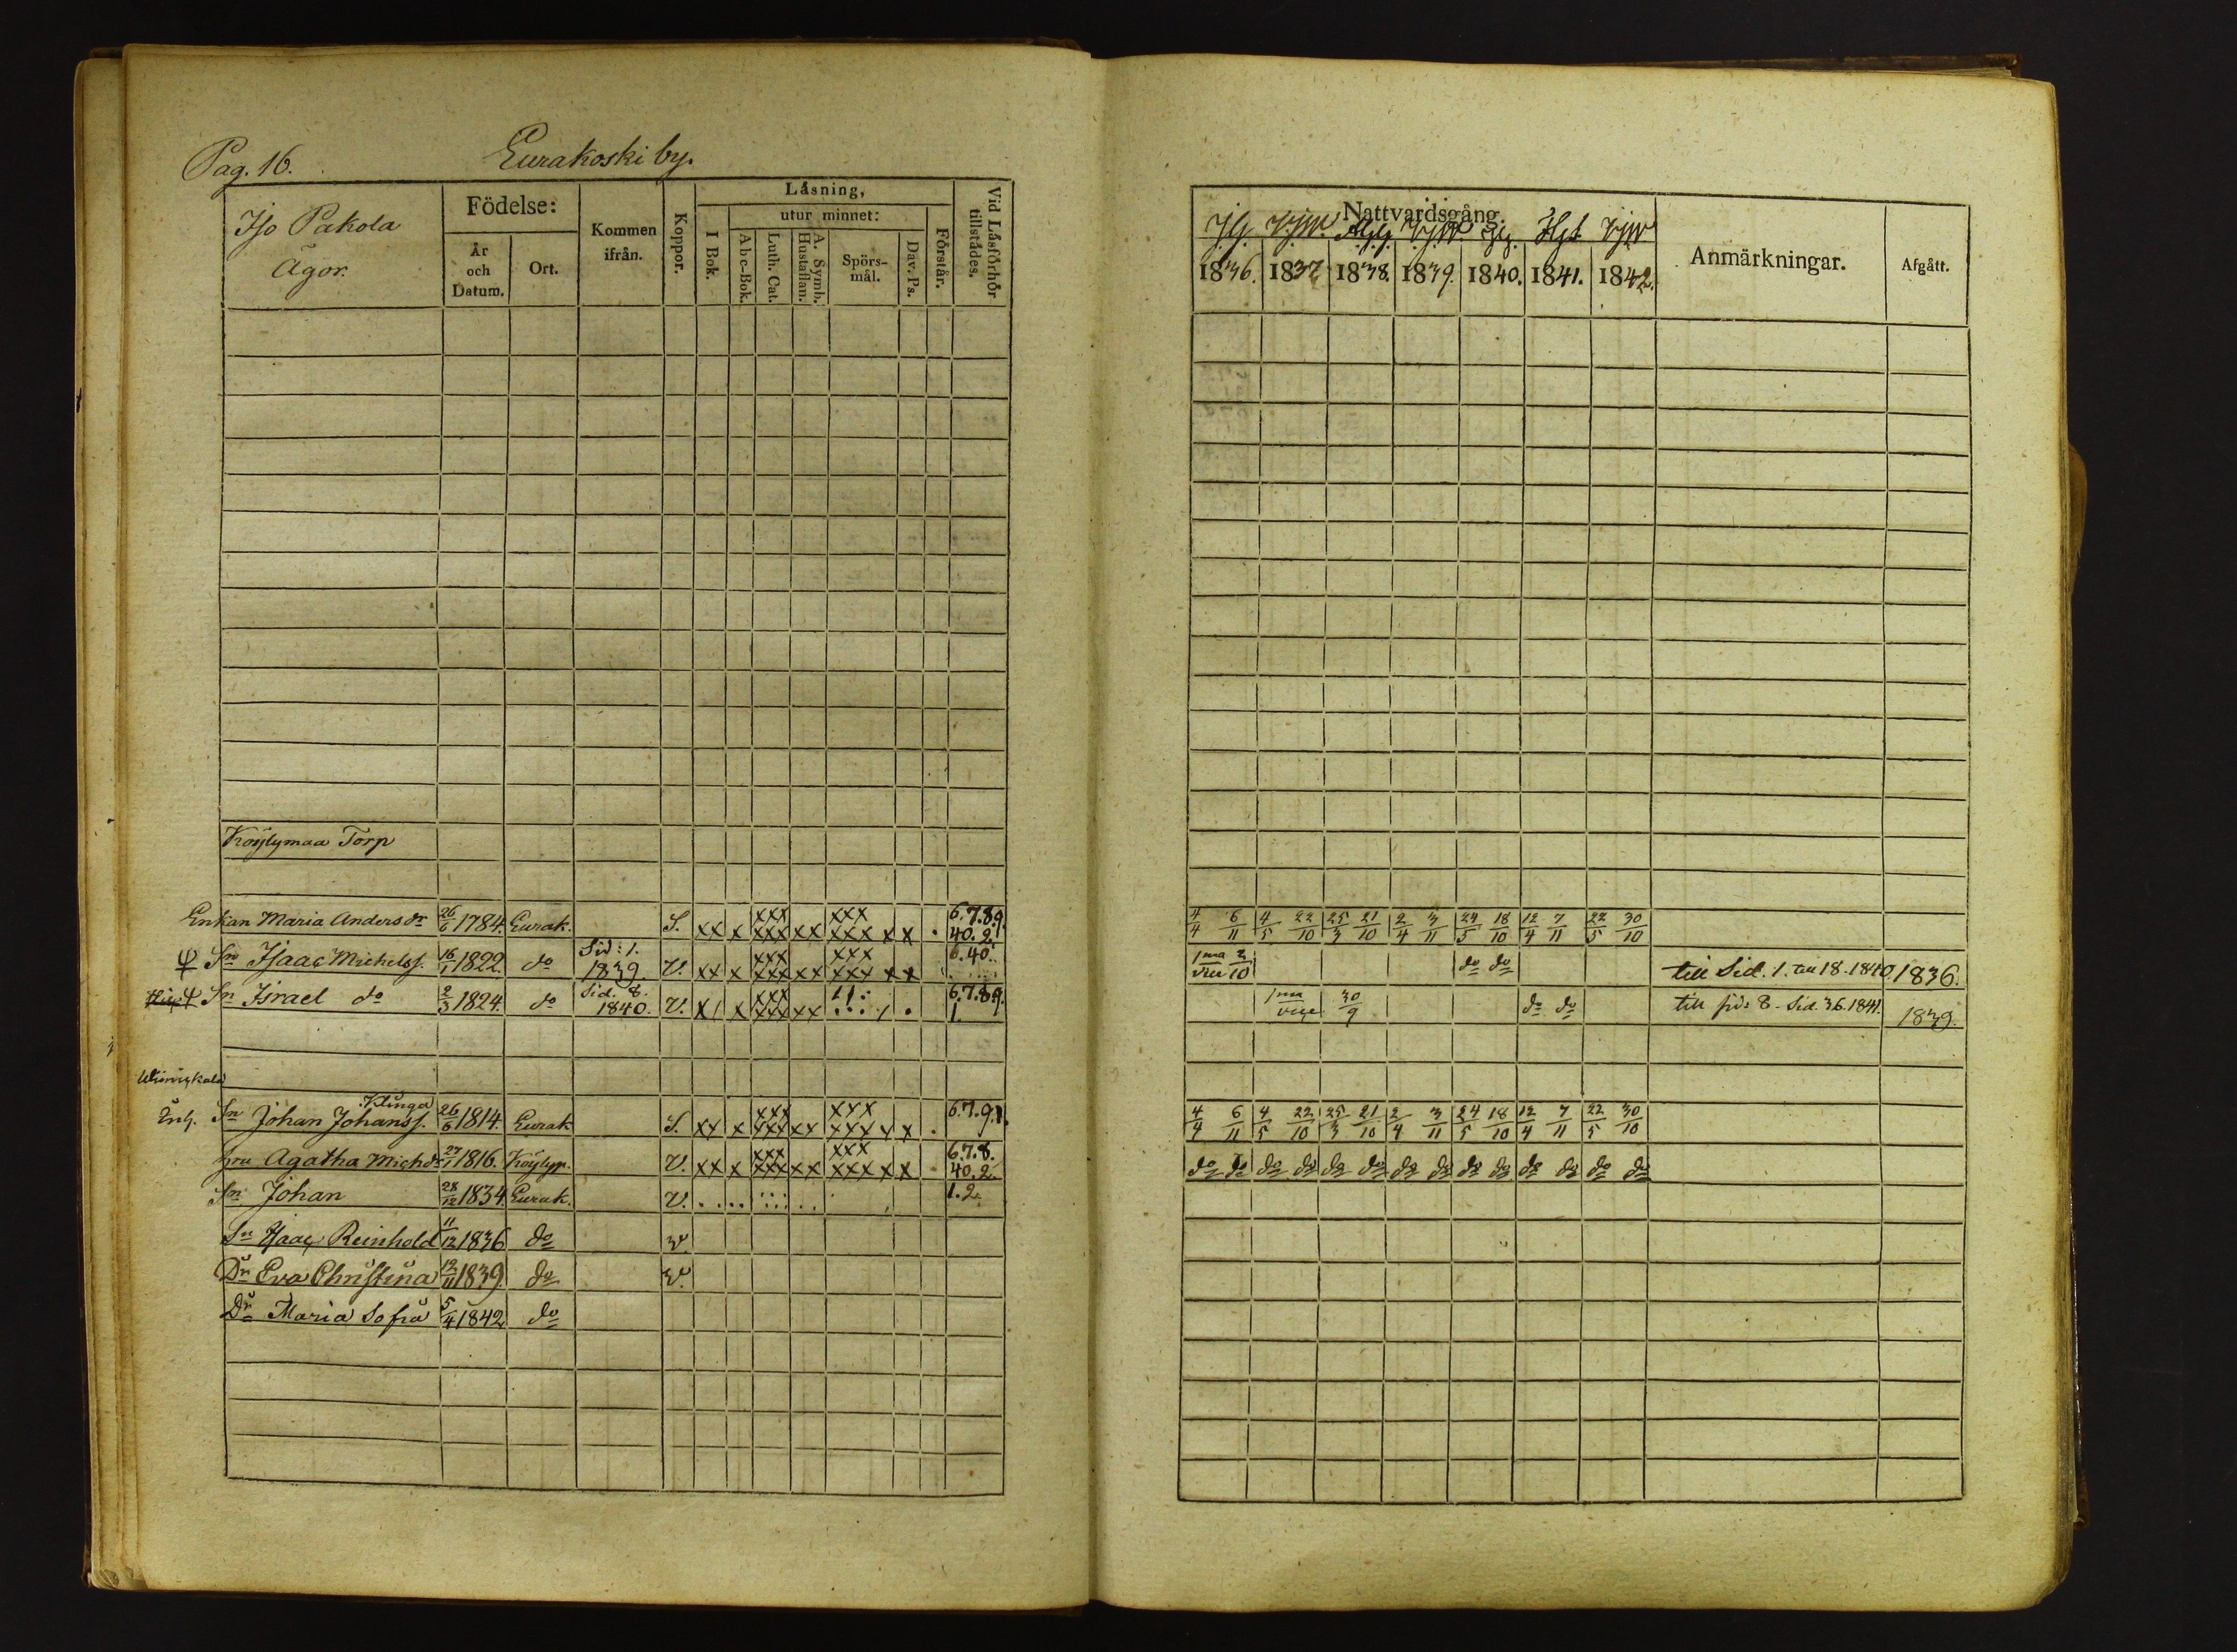 Pag. 16.
Eurakoski by.
Iso Pakola
Ägor.
Födelse:
År
och
Datum.
Ort.
Kommen
ifrån.
Koppor.
Läsning,
I Bok.
utur minnet:
Abc-Bok.
Luth. Cat.
A. Symb.
Hustaflan.
Spörs-
mål.
Dav. Ps.
Förstår.
Vid Läsförhör
tillstädes.
Nattvardsgång.
1836. 1837 1838. 1839. 1840. 1841. 1842.
Anmärkningar.
Afgått.
Köylymaa Torp
Enkan Maria Andersdr 26/6 1784. Eurak. S. xx x xxx xxx xx xxx xxx x x . 6.7.8.9. 40.2. 4/4 6/11 4/5 22/10 25/3 21/10 2/4 3/11 24/5 18/10 12/4 7/11 22/5 30/10
Sn Isaac Michelss. 16/1 1822. do Sid: 1. 1839. V. xx x xxx xxx xx xxx xxx x x 6.40. 1ma 2/10 do do till Sid. 1. till 18. 1840 1836.
Sn Israel do 2/3 1824. do Sid. 8. 1840. V. x/ x xxx xxx xx 6.7.8.9. 1. 1ma 30/9 do do till sid: 8 - Sid. 36. 1841. 1839.
Klinga
Sn Johan Johanss. 26/6 1814. Eurak S. xx x xxx xxx xx xxx xxx x x . 6.7.9. 4/4 6/11 4/5 22/10 25/3 21/10 2/4 3/11 24/5 18/10 12/4 7/11 22/5 30/10
hru Agatha Michdr 27/1 1816. Köylyp. V. xx x xxx xxx xx xxx xxx x x 6.7.8. 40.2. do do do do do do do do do do do do do do
Sn Johan 28/12 1834. Eurak. V. 1.2.
Sn Isaac Reinhold 11/12 1836 do v
Dr Eva Christina 12/11 1839. do v.
Dr Maria Sofia 5/4 1842 do